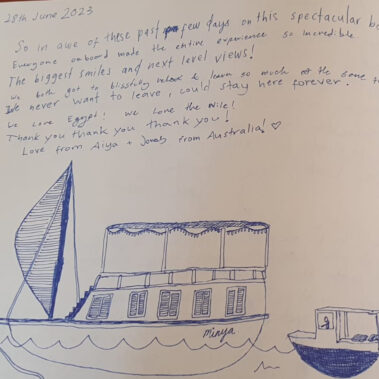 28th June 2023
So in awe of these past few days on this spectacular b
Everyone onboard made the entire experience so incredible
The biggest smiles and next level views!
We both got to blissfully relax & learn so much at the same t
never want to leave, could stay here forever.
We Love Egypt! We Love the Nile!
Thank you thank you thank you!
Love from Aiya + from Australia! ♡
Minya